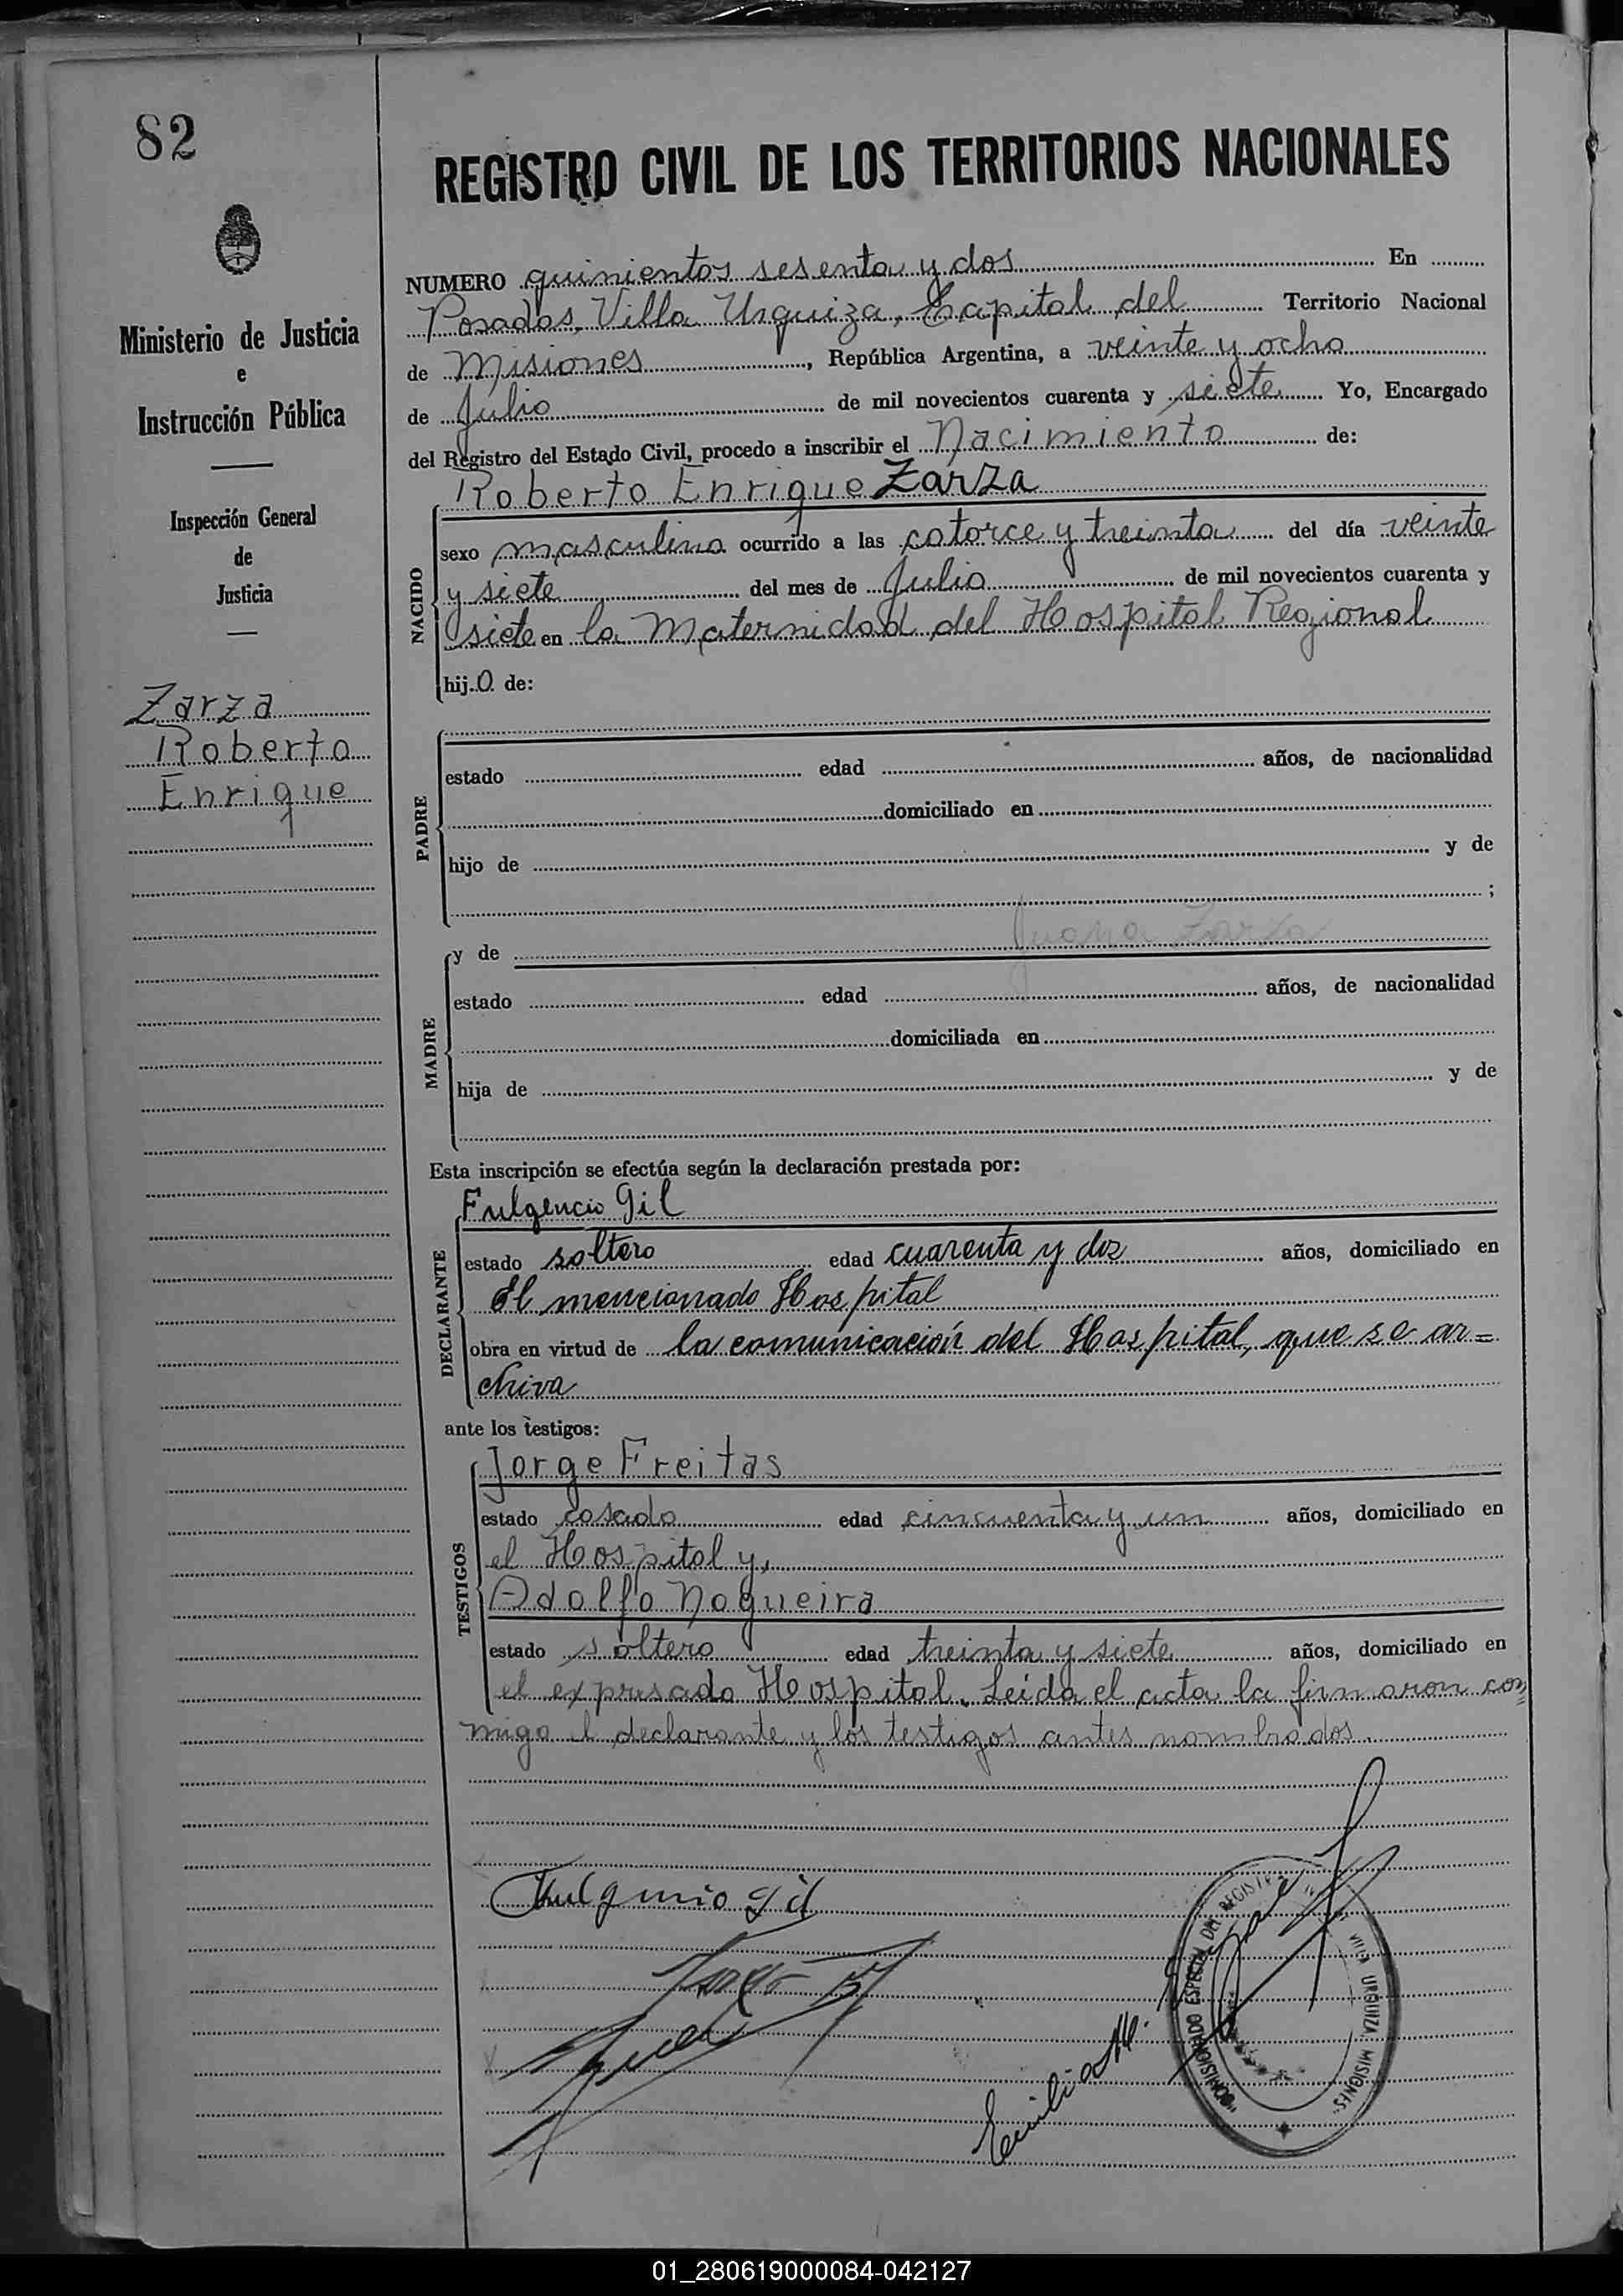 82
REGISTRO CIVIL DE LOS TERRITORIOS NACIONALES
Ministerio de Justicia
e
Instrucción Pública
Inspección General
de
Justicia
Zarza
Roberto
Enrique
NUMERO quinientos sesenta y dos En
Posadas, Villa Urquiza, Capital del Territorio Nacional
de Misiones, República Argentina, a veinte y ocho
de Julio de mil novecientos cuarenta y siete Yo, Encargado
del Registro del Estado Civil, procedo a inscribir el Nacimiento de:
Roberto Enrique Zarza
NACIDO
sexo masculino ocurrido a las catorce y treinta del día veinte
y siete del mes de Julio de mil novecientos cuarenta y
siete en la Maternidad del Hospital Regional
hijo de:
PADRE
estado edad años, de nacionalidad
domiciliado en
hijo de y de
;
MADRE
y de Juana Zarza
estado edad años, de nacionalidad
domiciliada en
hija de y de
Esta inscripción se efectúa según la declaración prestada por:
DECLARANTE
Fulgencio Gil
estado soltero edad cuarenta y dos años, domiciliado en
El mencionado Hospital
obra en virtud de la comunicación del Hospital, que se ar=
chiva
ante los testigos:
TESTIGOS
Jorge Freitas
estado casado edad cincuenta y un años, domiciliado en
el Hospital y,
Adolfo Nogueira
estado soltero edad treinta y siete años, domiciliado en
el expresado Hospital. Leída el acta la firmaron con=
migo el declarante y los testigos antes nombrados.
Fulgencio Gil
Emilio M.
COMISIONADO ESPECIAL DEL REGISTRO VILLA URQUIZA MISIONES
01_280619000084-042127